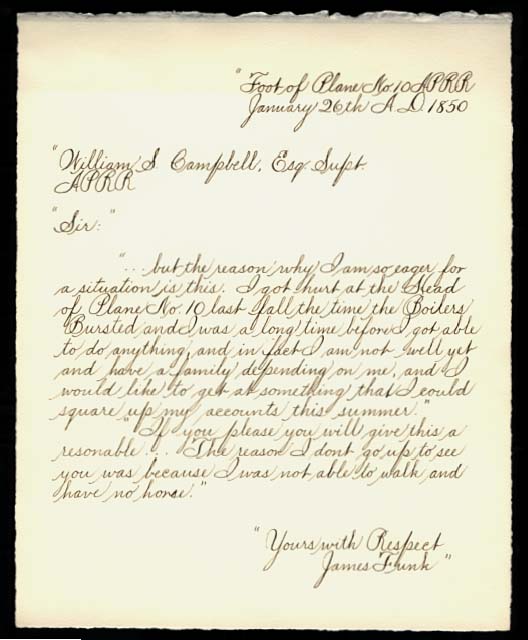 "Foot of Plane No. 10 APRR
January 26th A.D. 1850
"William S Campbell, Esq. Supt.
APRR
"Sir:"
"... but the reason why I am so eager for
a situation is this. I got hurt at the Head
of Plane No. 10 last fall the time the Boilers
Bursted and I was a long time before I got able
to do anything, and in fact I am not well yet
and have a family depending on me, and I
would like to get at something that I could
square up my accounts this summer."
"If you please you will give this a
resonable ... The reason I dont go up to see
you was because I was not able to walk and
have no horse."
"Yours with Respect
James Funk"